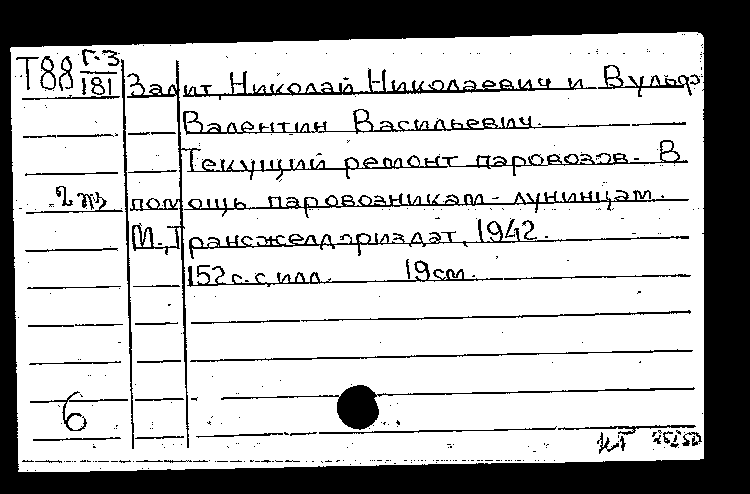 Т88 Г-3
181
Залит, Николай Николаевич и Вульф
Валентин Васильевич.
Текущий ремонт паровозов. В
2 экз помощь паровозникам-лунинцам.
М., Трансжелдориздат, 1942.
152 с. с илл. 19 см.
6